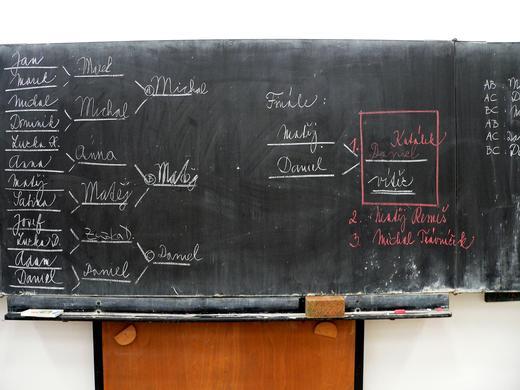 Jan
Marek
Michal
Dominik
Lucka R.
Anna
Matěj
Šárka
Josef
Lucka D.
Adam
Daniel
Marek
Michal
Anna
Matěj
Lucka D.
Daniel
Michal
Matěj
Daniel
Finále:
Matěj
Daniel
1. Daniel
vítěz
2. Matěj Remeš
3. Michal Trávníček
AB
AC
BC
AB
AC
BC